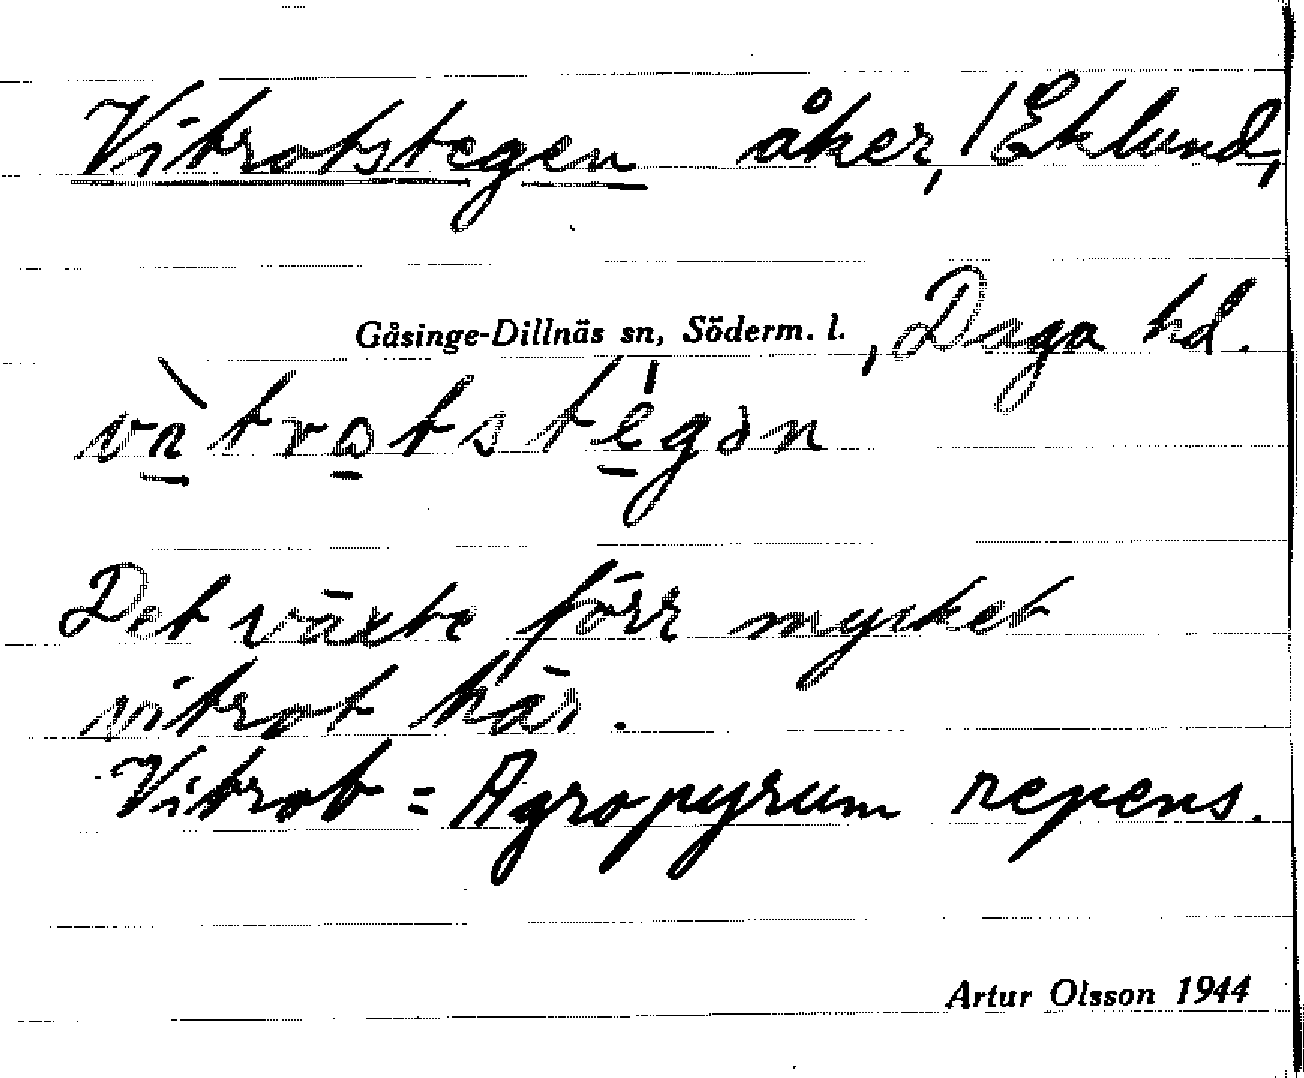 Vitrotstegen åker, / Eklund,
Gåsinge-Dillnäs sn, Söderm. l., Daga hd.
vìtrotstégən
Det växte förr mycket
vitrot här.
Vitrot = Agropyrum repens.
Artur Olsson 1944